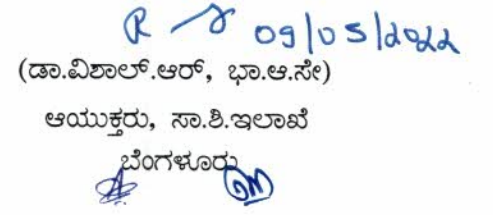 09/05/2022
(ಡಾ.ವಿಶಾಲ್.ಆರ್, ಭಾ.ಆ.ಸೇ)
ಆಯುಕ್ತರು, ಸಾ.ಶಿ.ಇಲಾಖೆ
ಬೆಂಗಳೂರು